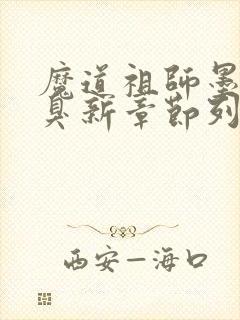 魔道祖師墨
臭新章節列
西安—海口